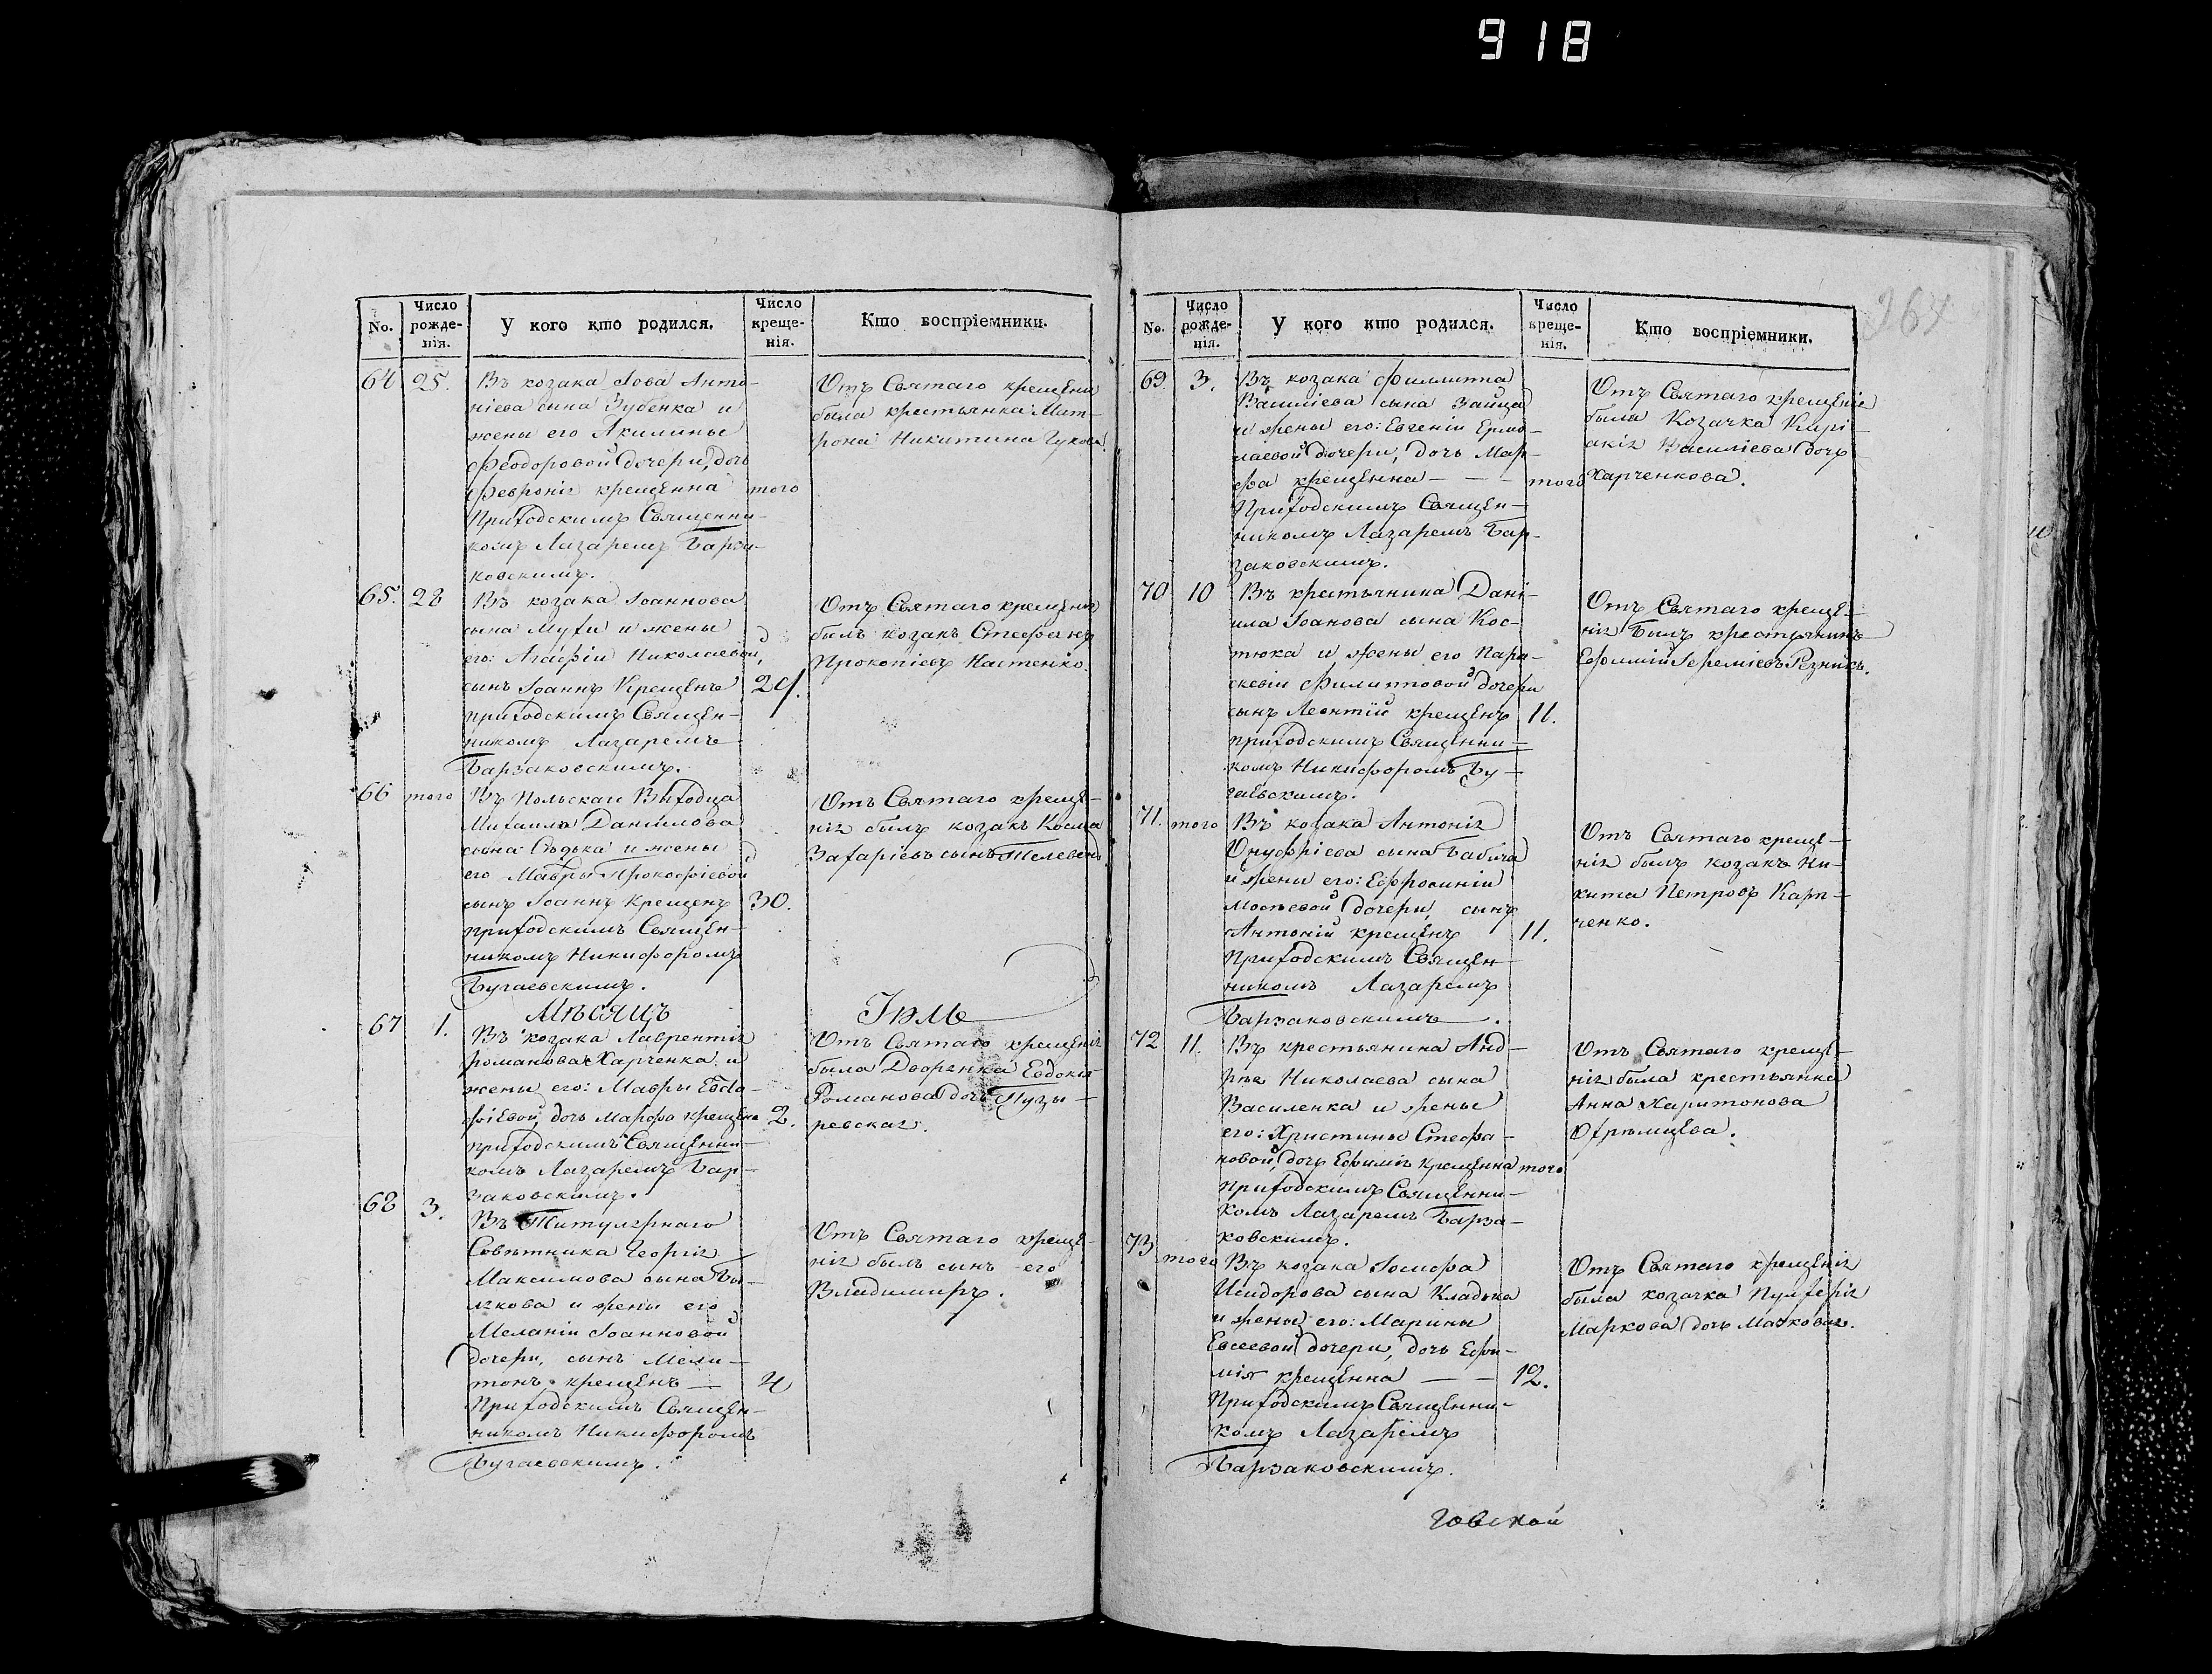 918
264
No.
Число рожде-нія.
У кого кто родился.
Число креще-нія.
Кто воспріемники.
64 25. Въ козака Іова Анто-
ніева сына Зубенка и
жены его Акилины
Феодоровой дочери, дочь
Февронія крещенна того
Приходскимъ Священни-
комъ Лазаремъ Барза-
ковскимъ.
Отъ Святаго крещения
была крестьянка Мат-
рона Никитина
65. 28 Въ козака Іоаннова
сына Мухи и жены
его: Агафіи Николаевой,
сынъ Іоаннъ Крещенъ 29.
приходскимъ Священ-
никомъ Лазаремъ
Барзаковскимъ.
Отъ Святаго крещенія
билъ козакъ Стефанъ
Прокопіевъ Настенко
66 того Въ Польскаго Виходца
Михаила Даніилова
сына и жены
его Мавры Прокофіевой
сынъ Іоаннъ Крещенъ 30.
приходскимъ Священ-
никомъ Никифоромъ
Бугаевскимъ.
Отъ Святаго креще-
нія билъ козакъ Косма
Захаріевъ сынъ
Мѣсяцъ Іюль
67 1. Въ козака Лаврентія
Романова Харченка и
жены его: Мавры Евдо-
фіевой, дочь Марфа крещена 2.
приходскимъ Священни-
комъ Лазаремъ Бар-
заковскимъ.
Отъ Святаго крещенія
была Дворянка Евдокія
Романова дочь Пузы-
ревская.
68 3. Въ Титулярнаго
Совѣтника Георгія
Максимова сына Бы-
лкова и жены его
Меланіи Іоанновой
дочери, сынъ Мели-
тонъ крещенъ — 4
Приходскимъ Священ-
никомъ Никифоромъ
Бугаевскимъ.
Отъ Святаго креще-
нія билъ сынъ его
Владимиръ.
No.
Число рожде-нія.
У кого кто родился.
Число креще-нія.
Кто воспріемники.
69. 3. Въ козака Филлиппа
Василіева сына Зайца
и жены его: Евгеніи Ермо-
лаевой дочери, дочь Мар-
фа крещенна — — — того
Приходскимъ Священ-
никомъ Лазаремъ Бар-
заковскимъ.
Отъ Святаго крещеніе
была Козачка Кирі-
акія Василіева дочь
Харченкова.
70 10 Въ крестьянина Дані-
ила Іоанова сына Кос-
тюка и жены его Пара-
скевіи Филипповой дочери
сынъ Леонтій крещенъ 11.
приходскимъ Священни-
комъ Никифоромъ Бу-
гаевскимъ.
Отъ Святаго креще-
нія былъ крестьянинъ
Ефимій Іереміевъ Резникъ.
71. того Въ козака Антонія
Онуфріева сына Бабича
и жены его: Ефросиніи
Мосѣевой дочери, сынъ
Антоній крещенъ 11.
Приходскимъ Священ-
никомъ Лазаремъ
Барзаковскимъ.
Отъ Святаго креще-
нія билъ козакъ Ни-
кита Петровъ Карп-
ченко.
72 11. Въ крестьянина Анд-
рѣя Николаева сына
Василенка и жены
его: Христины Стефа-
новой, дочь Ефимія крещенна того
приходскимъ Священни-
комъ Лазаремъ Барза-
ковскимъ.
Отъ Святаго креще-
нія была крестьянка
Анна Харитонова
Охрѣмцева.
73 того Въ козака Іосифа
Исидорова сына Кладька
и жены его: Марины
Евсеевой дочери, дочь Ефи-
мія крещенна — — 12.
Приходскимъ Священни-
комъ Лазаремъ
Барзаковскимъ.
Отъ Святаго крещенія
была козачка Пулхерія
Маркова дочь Мачковая.
говской